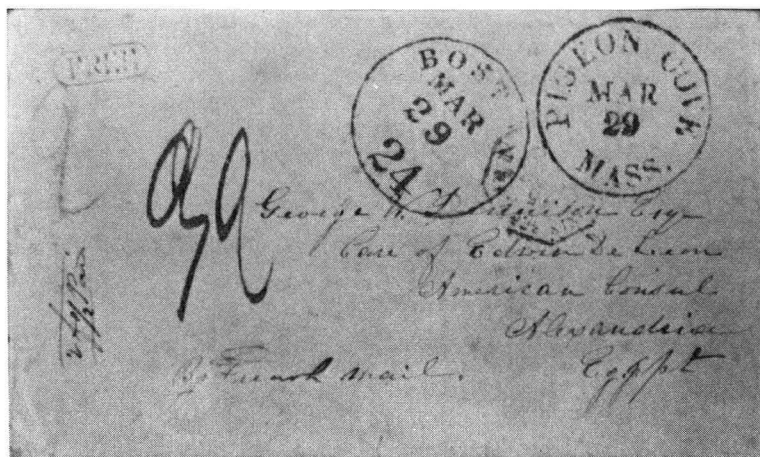 FREE
BOST
MAR
29
24
PIGEON COVE
MAR
29
MASS.
George W.
Care of Edwin De Leon
American Consul
Alexandria
Egypt
By French mail.